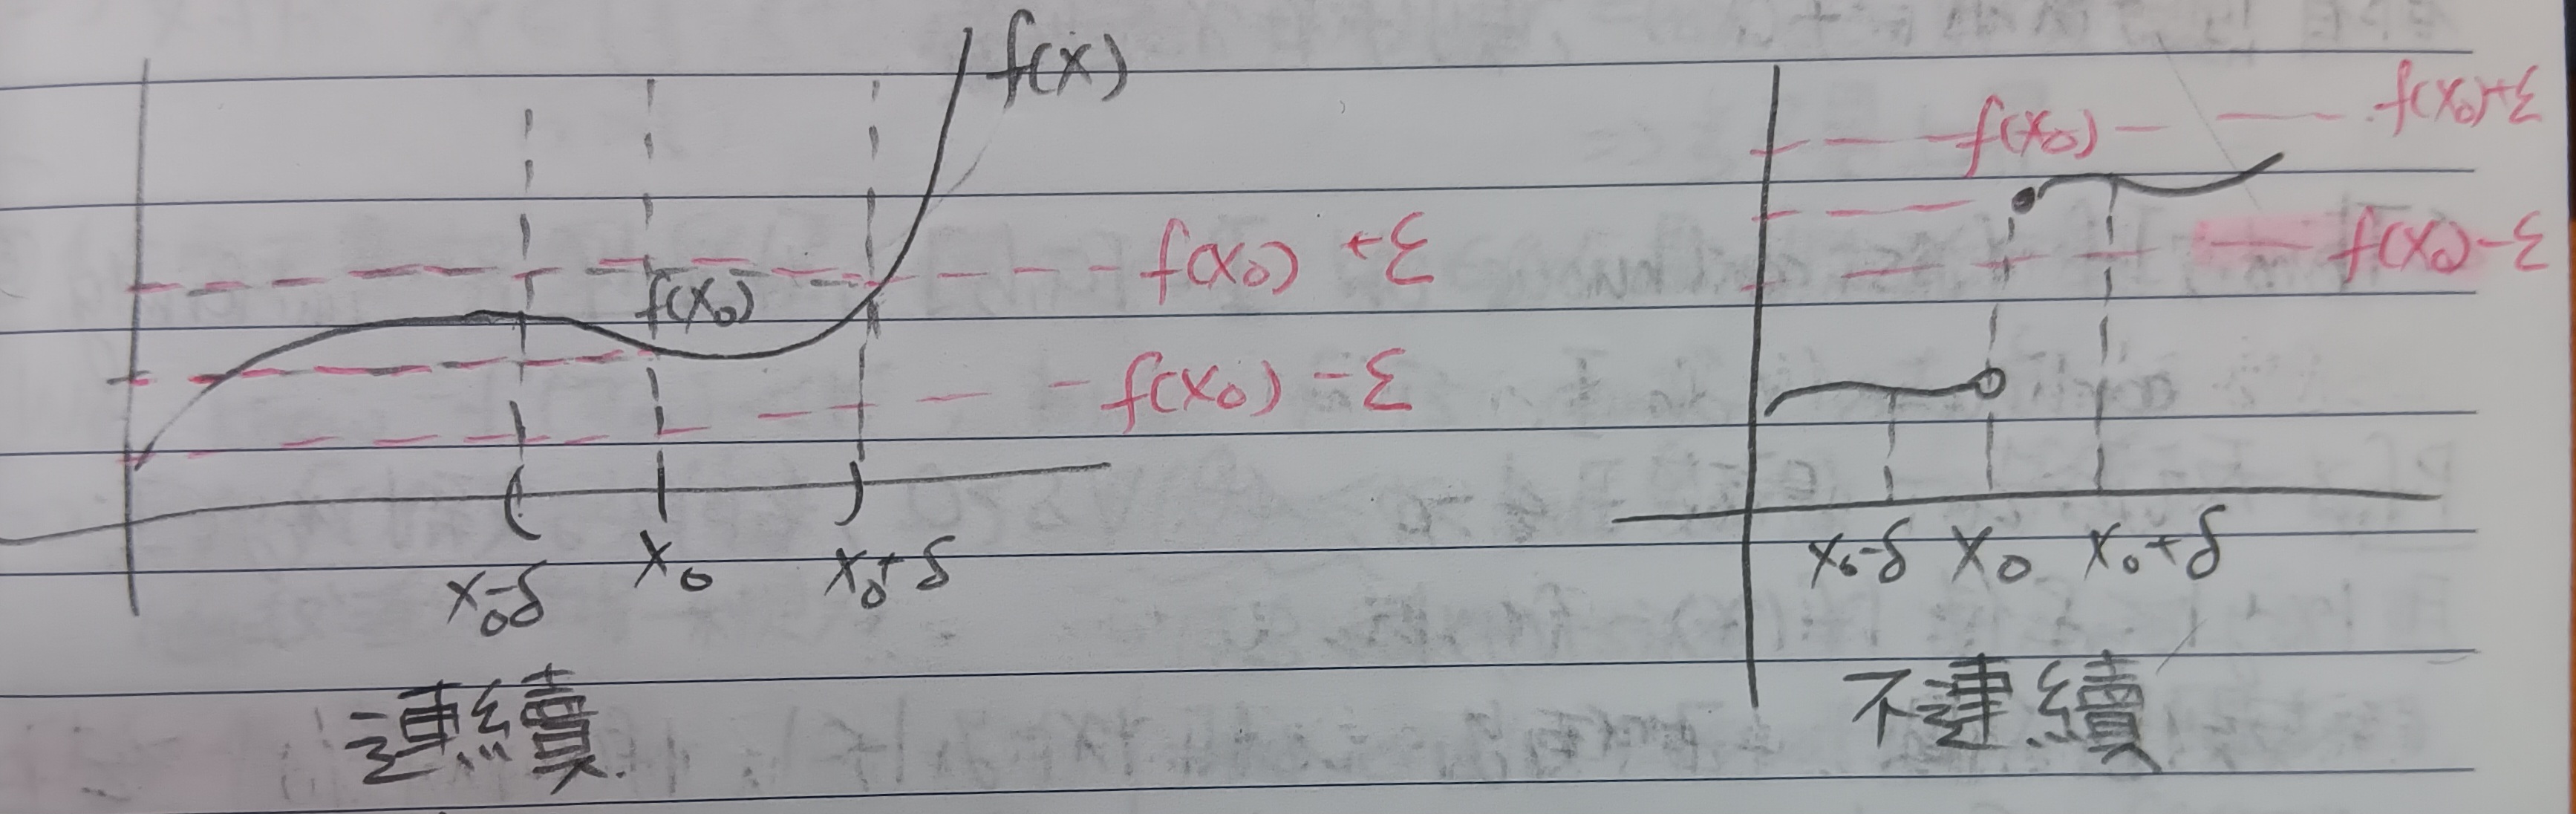 f(x)
f(x₀)
f(x₀) +ε
f(x₀) -ε
x₀-δ x₀ x₀+δ
連續
f(x₀) f(x₀)+ε
f(x₀)-ε
x₀-δ x₀ x₀+δ
不連續